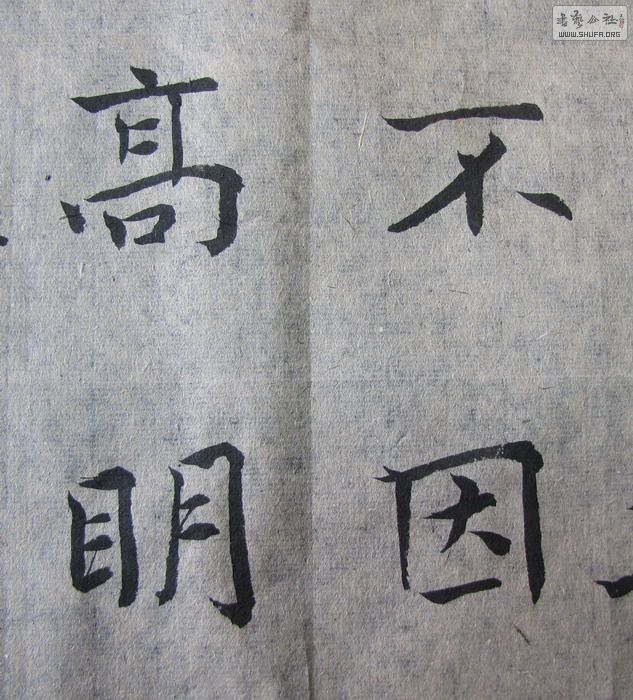 不因
高明
书艺公社
WWW.SHUFA.ORG